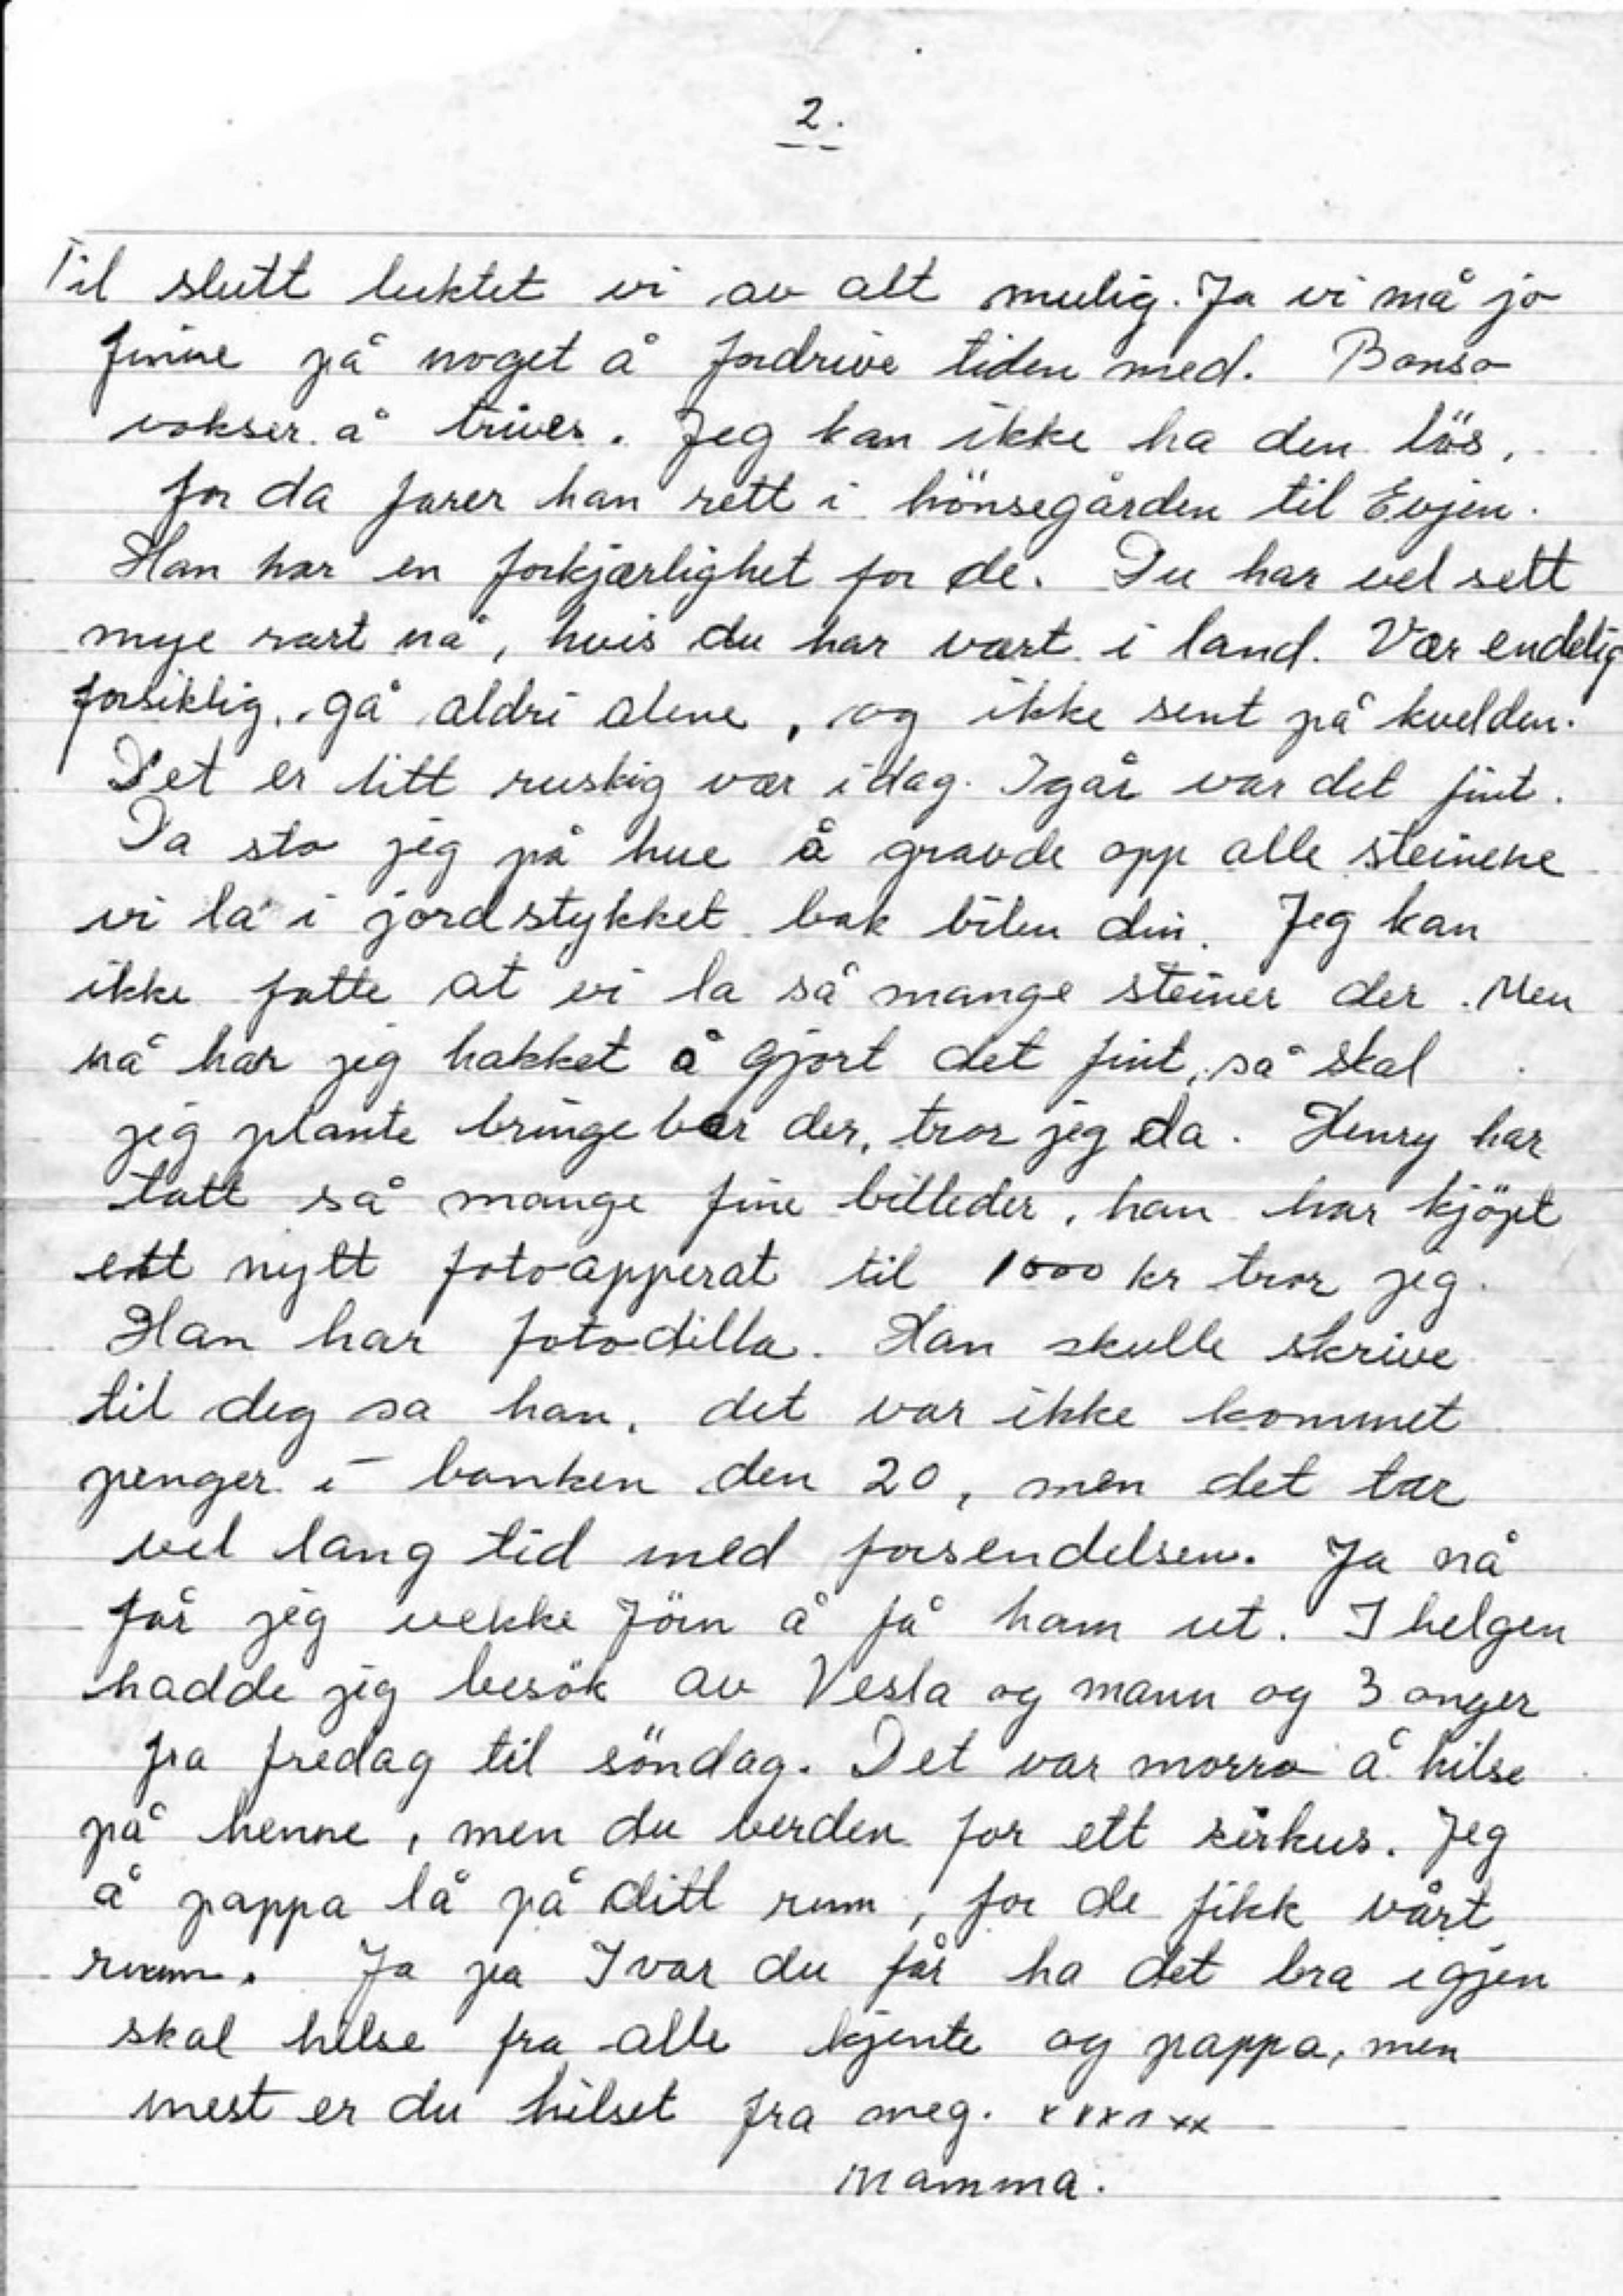 2.
Til slutt luktet vi av alt mulig. Ja vi må jo
finne på noget å fordrive tiden med. Bonso
vokser å trives. Jeg kan ikke ha den lös,
for da farer han rett i hönsegården til Evjen.
Han har en forkjærlighet for de. Du har vel sett
mye rart nå, hvis du har vært i land. Vær endelig
forsiktig, gå aldri alene, og ikke sent på kvelden.
Det er litt ruskig vær idag. Igår var det fint.
Da sto jeg på hue å gravde opp alle steinene
vi la i jordstykket bak bilen din. Jeg kan
ikke fatte at vi la så mange steiner der. Men
nå har jeg hakket å gjort det fint, så skal
jeg plante bringebær der, tror jeg da. Henry har
tatt så mange fine billeder, han har kjöpt
ett nytt fotoapperat til 1000 kr tror jeg.
Han har fotodilla. Han skulle skrive
til deg sa han, det var ikke kommet
penger i banken den 20, men det tar
vel lang tid med forsendelsen. Ja nå
får jeg vekke Jörn å få ham ut. I helgen
hadde jeg besök av Vesla og mann og 3 onger
fra fredag til söndag. Det var morro å hilse
på henne, men du verden for ett sirkus. Jeg
å pappa lå på ditt rum, for de fikk vårt
rum. Ja ja Ivar du får ha det bra igjen
skal hilse fra alle kjente og pappa, men
mest er du hilset fra meg. xxxxxx
Mamma.